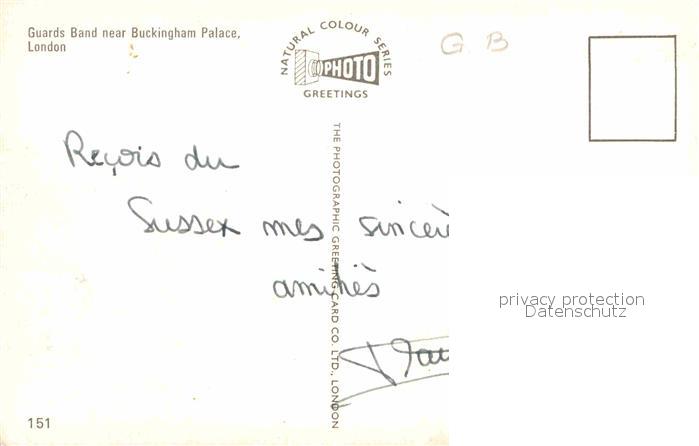 Guards Band near Buckingham Palace,
London
NATURAL COLOUR SERIES
PHOTO
GREETINGS
G B
THE PHOTOGRAPHIC GREETING CARD CO. LTD., LONDON
Reçois du
Sussex mes
amitiés
privacy protection
Datenschutz
151